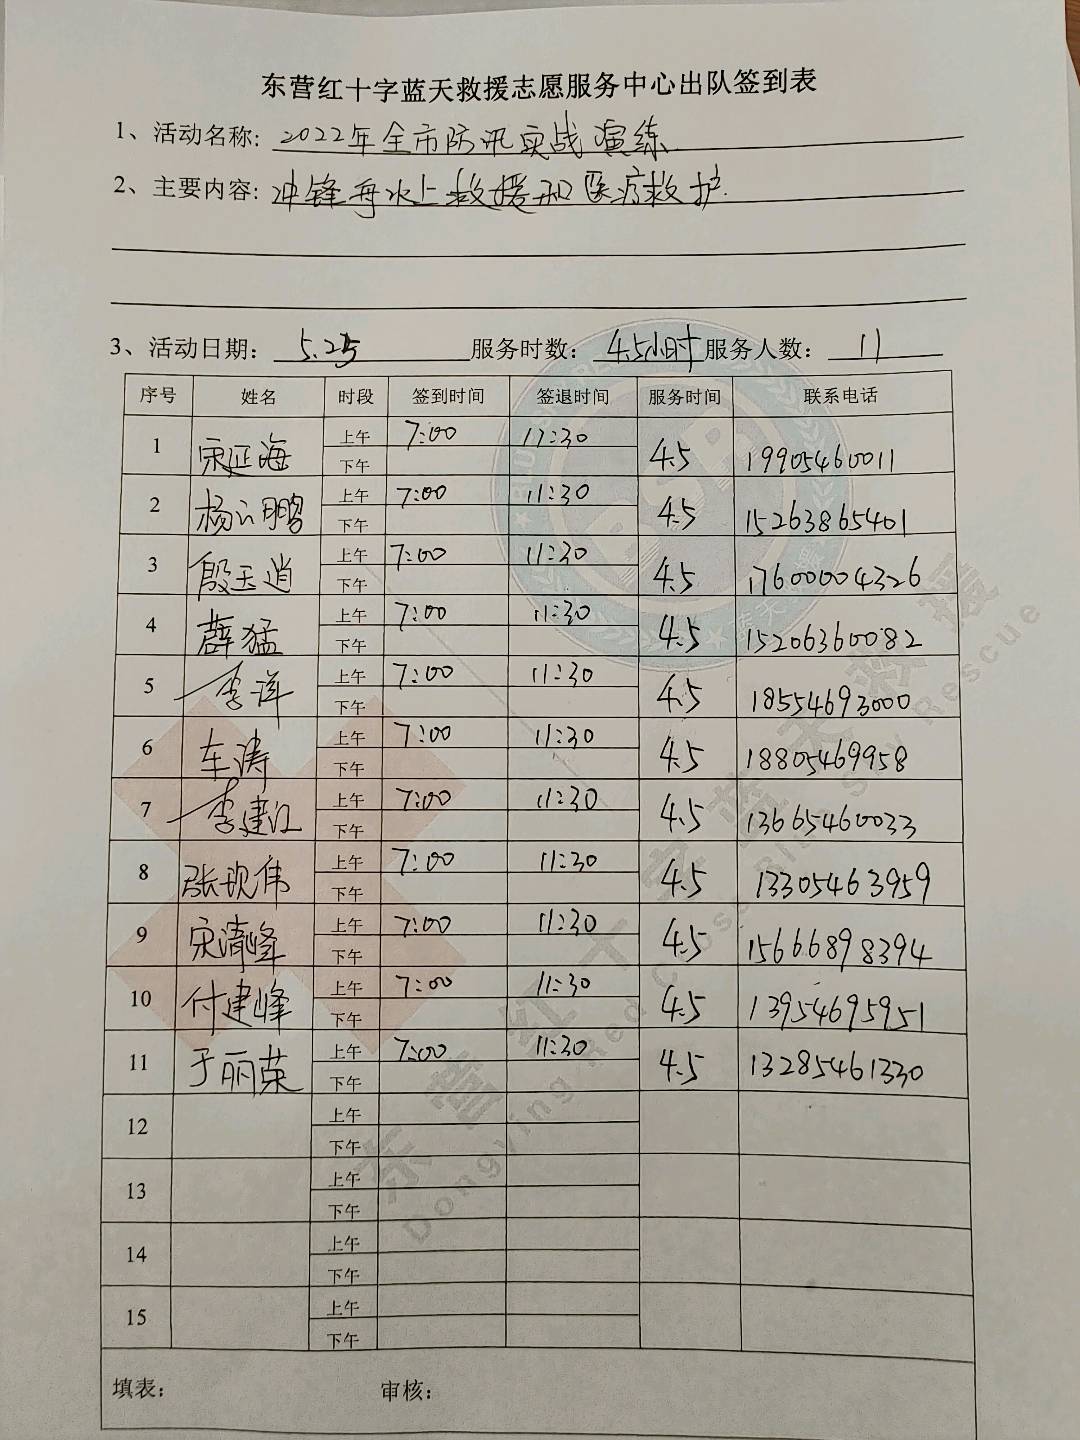 东营红十字蓝天救援志愿服务中心出队签到表
1、活动名称: 2022年全市防汛实战演练
2、主要内容: 冲锋舟水上救援和医疗救护.
3、活动日期: 5.25 服务时数: 4.5小时 服务人数: 11
序号 姓名 时段 签到时间 签退时间 服务时间 联系电话
1 宋延海 上午 7:00 11:30 4.5 19905460011
下午
2 杨云鹏 上午 7:00 11:30 4.5 15263865401
下午
3 殷玉逍 上午 7:00 11:30 4.5 17600004326
下午
4 薛猛 上午 7:00 11:30 4.5 15206360082
下午
5 李洋 上午 7:00 11:30 4.5 18554693000
下午
6 车涛 上午 7:00 11:30 4.5 18805469958
下午
7 李建江 上午 7:00 11:30 4.5 13665460033
下午
8 张现伟 上午 7:00 11:30 4.5 13305463959
下午
9 宋清峰 上午 7:00 11:30 4.5 15666898394
下午
10 付建峰 上午 7:00 11:30 4.5 13954695951
下午
11 于丽荣 上午 7:00 11:30 4.5 13285461330
下午
12 上午
下午
13 上午
下午
14 上午
下午
15 上午
下午
填表: 审核:
东营红十字蓝天救援
Dongying Red Cross Blue Sky Rescue